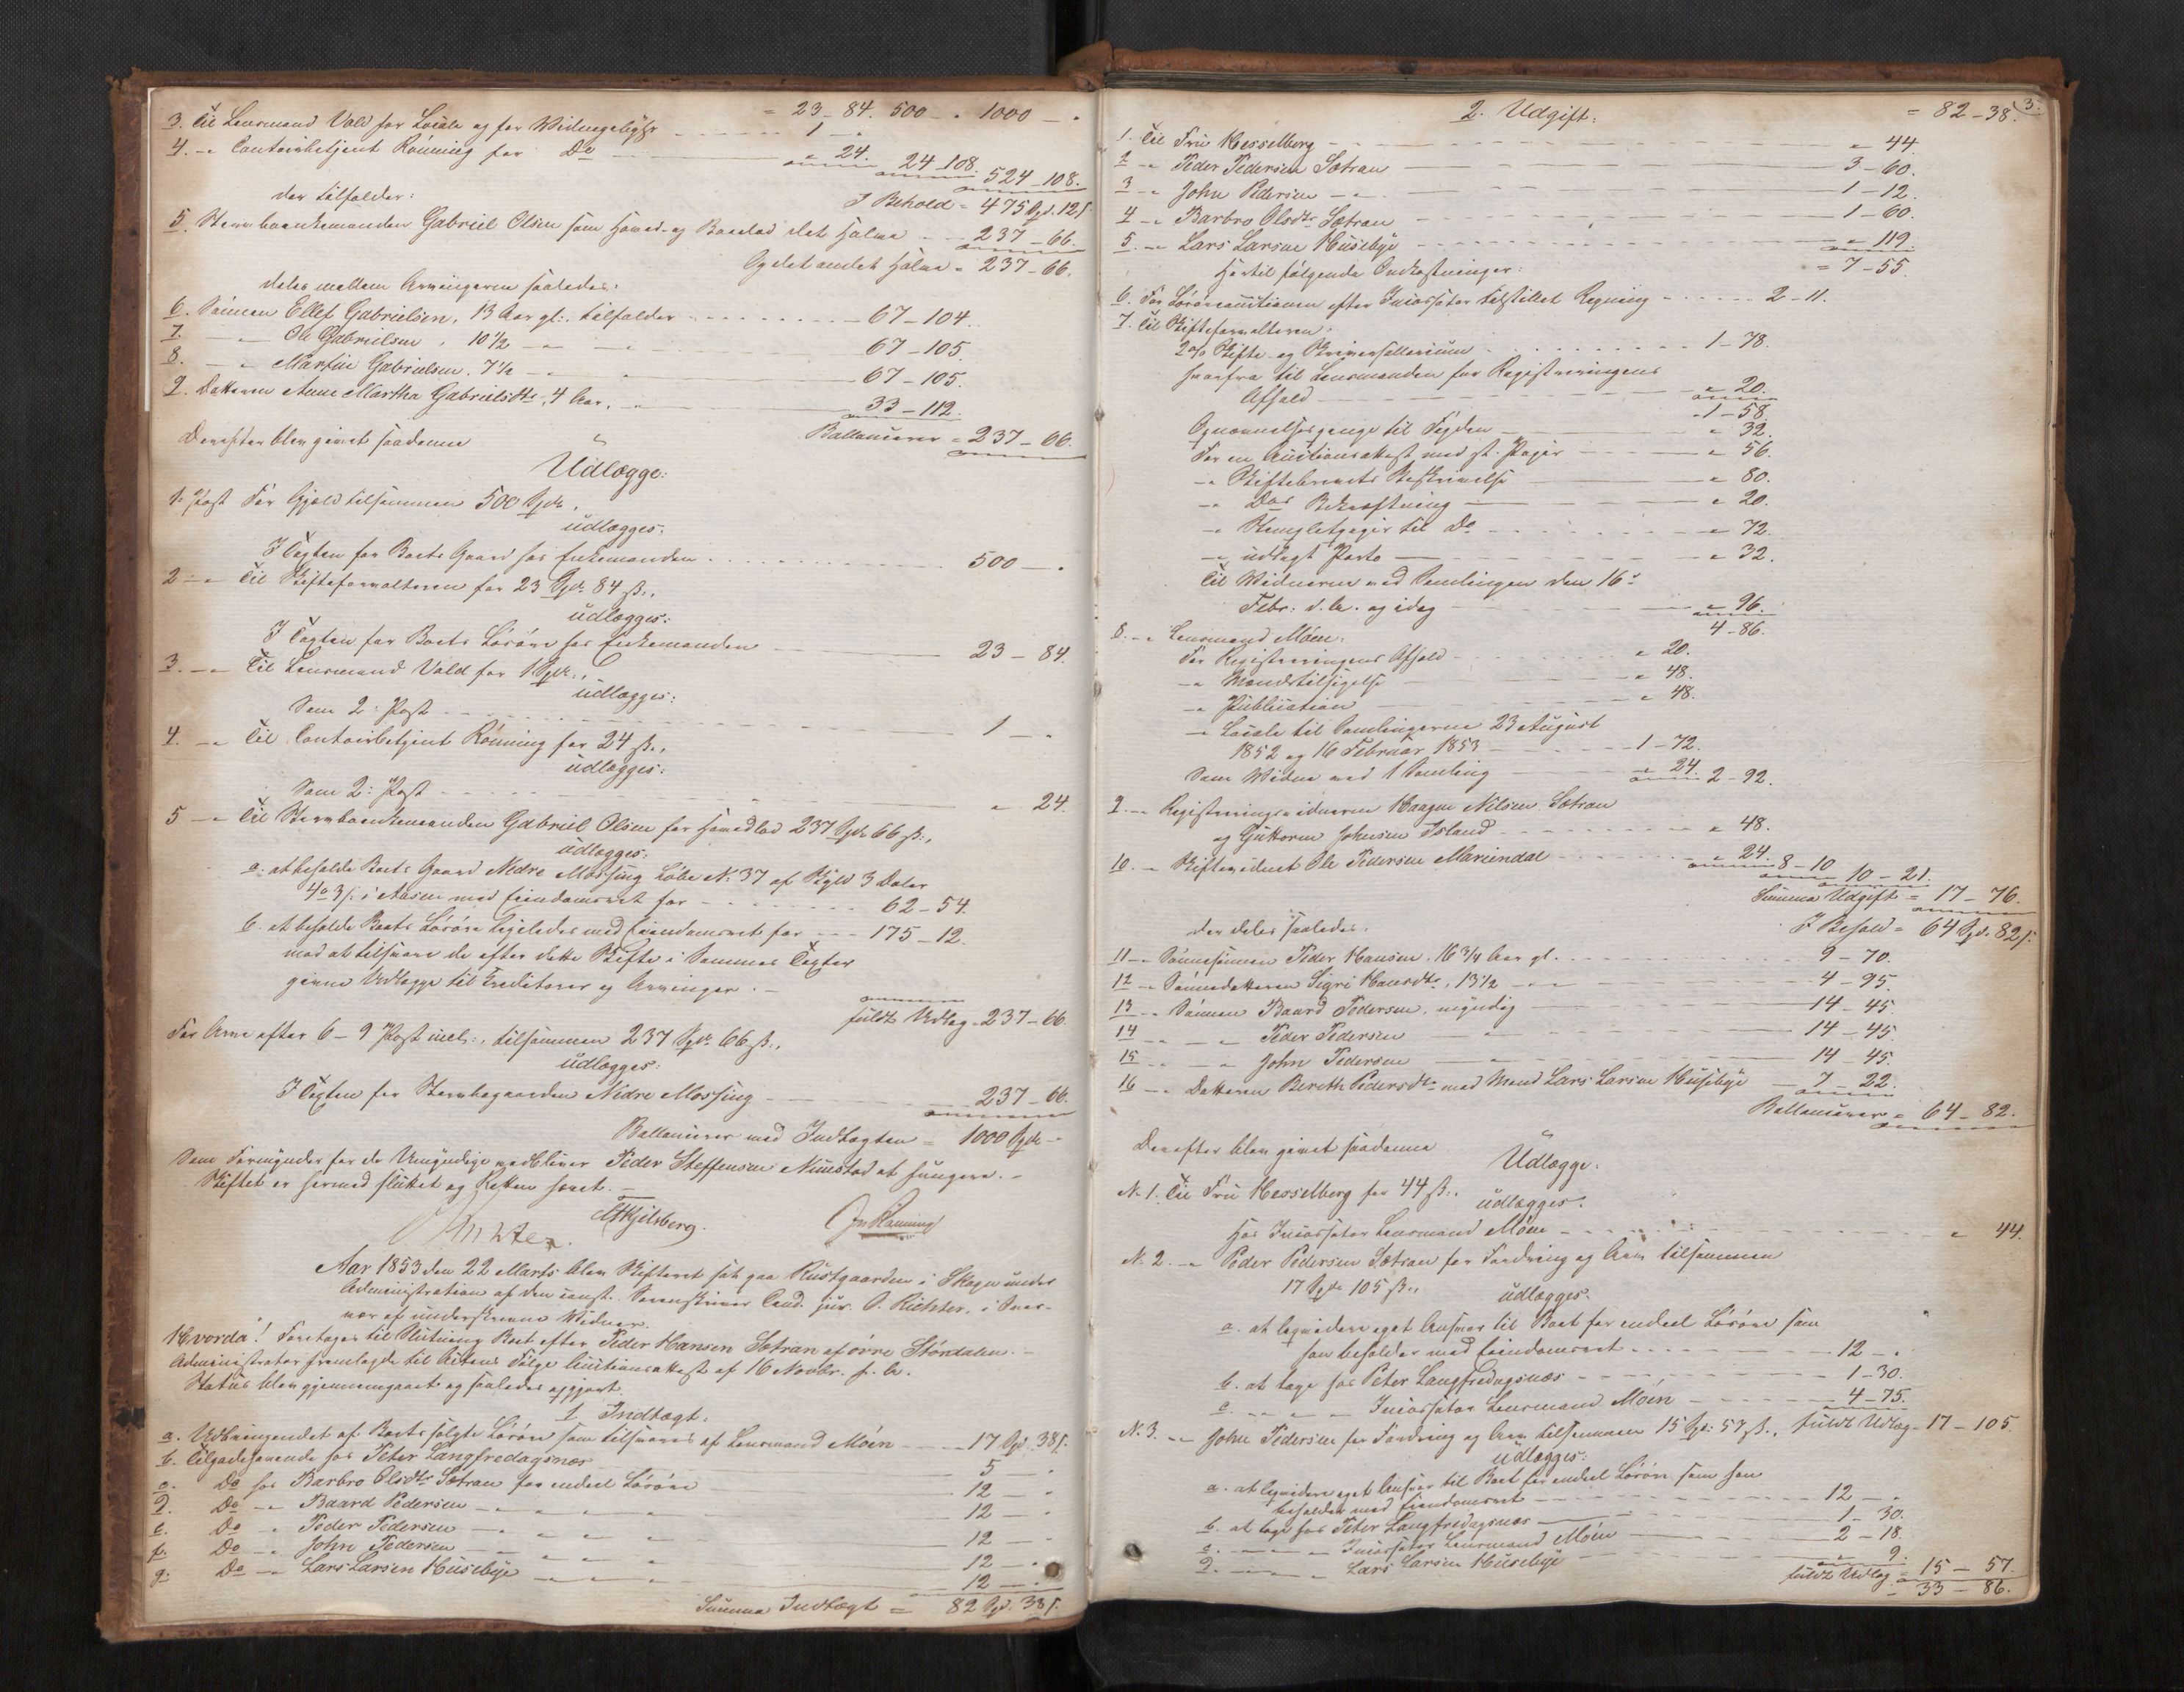 = 23 - 84. 500 - „ 1000 - „
3. Til Lensmand Vold for Locale og for Widnegebyhr - - - 1 - „
4. -„ Contoirbetjent Rönning for Do - - - „ 24. 24 - 108. 524 - 108.
I Behold = 475 Spd. 12 ß
der tilfalder:
5. Stervboenkemanden Gabriel Olsen som Hoved- og Boeslod det Halve - - 237 - 66.
Og det andet Halve = 237 - 66.
deles mellem Arvingerne saaledes:
6. Sönnen Ellef Gabrielsen, 13 Aar gl. tilfalder - - - 67 - 104.
7. -„- Ole Gabrielsen, 10 1/2 -„- - - - 67 - 105.
8. -„- Martin Gabrielsen, 7 1/2 -„- - - - 67 - 105.
9. Datteren Anne Martha Gabrielsdtr, 4 Aar, -„- 33 - 112.
Ballancerer = 237 - 66.
Derefter blev gjort saadanne
Udlægge:
1. Post For Gjeld tilsammen 500 Spdr.,
udlægges:
I Tægten for Boets Gaard hos Enkemanden - - - 500 - „
2 -„- Til Skifteforvalteren for 23 Spdr. 84 ß.,
udlægges:
I Tægten for Boets Lösöre hos Enkemanden - - - 23 - 84.
3. -„ Til Lensmand Vold for 1 Spdr.,
udlægges:
Som 2: Post - - - 1 - „
4. -„ Til Contoirbetjent Rönning for 24 ß.,
udlægges:
Som 2: Post - - - „ 24.
5 -„ Til Stervboenkemanden Gabriel Olsen for Hovedlod 237 Spdr 66 ß.,
udlægges:
a. at beholde Boets Gaard Nedre Mossing Löbe No. 37 af Skyld 3 Daler
4 o 3 ß. i med Eiendomsret for - - - 62 - 54.
b. at beholde Boets Lösöre ligeledes med Eiendomsret for - - - 175 - 12.
mod at tilsvare de efter dette Skifte i Sammes Tægter
givne Udlægge til Kreditorer og Arvinger. -
fuldt Udlæg = 237 - 66.
For Arv efter 6 - 9 Post incl., tilsammen 237 Spdr. 66 ß.,
udlægges:
I Tægten for Stervbogaarden Nedre Mossing - - - 237 - 66.
Ballancerer med Indtægten = 1000 Spdr. -
Som Formynder for de Umyndige vedbliver Peder Steffensen Nuustad at fungere. -
Skiftet er hermed sluttet og Retten hævet. -
O. Richter. Kjelsberg. Rönning
Aar 1853 den 22 Marts blev Skifteret sat paa Rustgaarden i Skogn under
Administration af den const. Sorenskriver Cand. jur. O. Richter, i Nær-
vær af underskrevne Widner.
Hvorda! Foretages til Slutning Boet efter Peder Hansen Sætran af övre Stördalen. -
Administrator fremlagde til Actens Fölge Auctionsattest af 16 Novbr. f. A.
Status blev gjennemgaaet og saaledes opgjort.
1. Indtægt:
a. Udbringendet af Boets solgte Lösöre som tilsvares af Lensmand Möen - - - 17 Spd. 38 ß.
b. Tilgodehavende hos Peter Langfredagsnæs - - - 5 „
c. Do hos Barbro Olsdtr Sætran for endeel Lösöre - - - 12 - „
d. Do -„ Baard Pedersen -„- - - - 12 - „
e. Do -„ Peder Pedersen -„- - - - 12 - „
f. Do -„ John Pedersen -„- - - - 12 - „
g. Do -„ Lars Larsen Husebye -„- - - - 12 - „
Summa Indtægt = 82 Spd. 38 ß.
3.
2. Udgift: = 82 - 38.
1. Til Fru Hesselberg - - - „ 44.
2 -„ Peder Pedersen Sætran - - - 3 - 60.
3 -„ John Pedersen - - - 1 - 12.
4 -„ Barbro Olsdtr Sætran - - - 1 - 60.
5. -„ Lars Larsen Husebye - - - „ 119.
= 7 - 55.
Hertil fölgende Omkostninger:
6. For Lösöreauctionen efter Incassator tilstillet Regning - - - 2 - 11.
7. Til Skifteforvalteren:
2 % Skifte- og Skriversallarium - - - 1 - 78.
hvorfra til Lensmanden for Registreringens
Afhold - - - „ 20.
1 - 58.
Opnævnelsespenge til Fogden - - - „ 32.
For en Auctionsattest med st. Papir - - - „ 56.
-„ Skiftebrevets Beskrivelse - - - „ 80.
-„ Dos Bekræftning - - - „ 20.
-„ Stempletpapir til Do - - - „ 72.
-„ udlagt Porto - - - „ 32.
Til Widnerne ved Samlingen den 16de
Febr. d. A. og idag - - - „ 96.
4 - 86.
8. -„ Lensmand Möen:
For Registreringens Afhold - - - „ 20.
-„ Mændstilsigelse - - - „ 48.
-„ Publication - - - „ 48.
-„ Locale til Samlingerne 23 August
1852 og 16 Februar 1853 - - - 1 - 72.
Som Widne ved 1 Samling - - - „ 24. 2 - 92.
9. -„ Registreringsvidnerne Haagen Nilsen Sætran
og Guttorm Johnsen Island - - - „ 48.
10. -„ Skiftevidnet Ole Pedersen Mariendal - - - „ 24. 8 - 10 10 - 21.
Summa Udgift = 17 - 76.
I Behold = 64 Spd. 82 ß.
der deles saaledes:
11 -„ Sönnesönnen Peder Hansen, 16 3/4 Aar gl. - - - 9 - 70.
12 -„ Sönnedatteren Sigri Hansdtr, 13 1/2 -„- - - - 4 - 95.
13 -„ Sönnen Baard Pedersen, myndig - - - 14 - 45.
14 -„ -„ Peder Pedersen -„- - - - 14 - 45.
15 -„ -„ John Pedersen -„- - - - 14 - 45.
16 -„ Datteren Bereth Pedersdtr med Mand Lars Larsen Husebye - 7 - 22.
Ballancerer = 64 - 82.
Derefter blev gjort saadanne
Udlægge:
No. 1. Til Fru Hesselberg for 44 ß.,
udlægges:
hos Incassator Lensmand Möen - - - „ 44.
No. 2. -„ Peder Pedersen Sætran for Fordring og Arv tilsammen
17 Spdr 105 ß.,
udlægges:
a. at liqvidere eget Ansvar til Boet for endeel Lösöre som
han beholder med Eiendomsret - - - 12 - „
b. at tage hos Peter Langfredagsnæs - - - 1 - 30.
c. -„ -„ -„ Incassator Lensmand Möen - - - 4 - 75.
fuldt Udlæg = 17 - 105.
No. 3. -„ John Pedersen for Fordring og Arv tilsammen 15 Spd. 57 ß.,
udlægges:
a. at liqvidere eget Ansvar til Boet for endeel Lösöre som han
beholder med Eiendomsret - - - 12 - „
b. at tage hos Peter Langfredagsnæs - - - 1 - 30.
c. -„ -„ -„ Incassator Lensmand Möen - - - 2 - 18.
d. -„ -„ -„ Lars Larsen Husebye - - - „ 9.
fuldt Udlæg = 15 - 57.
= 33 - 86.